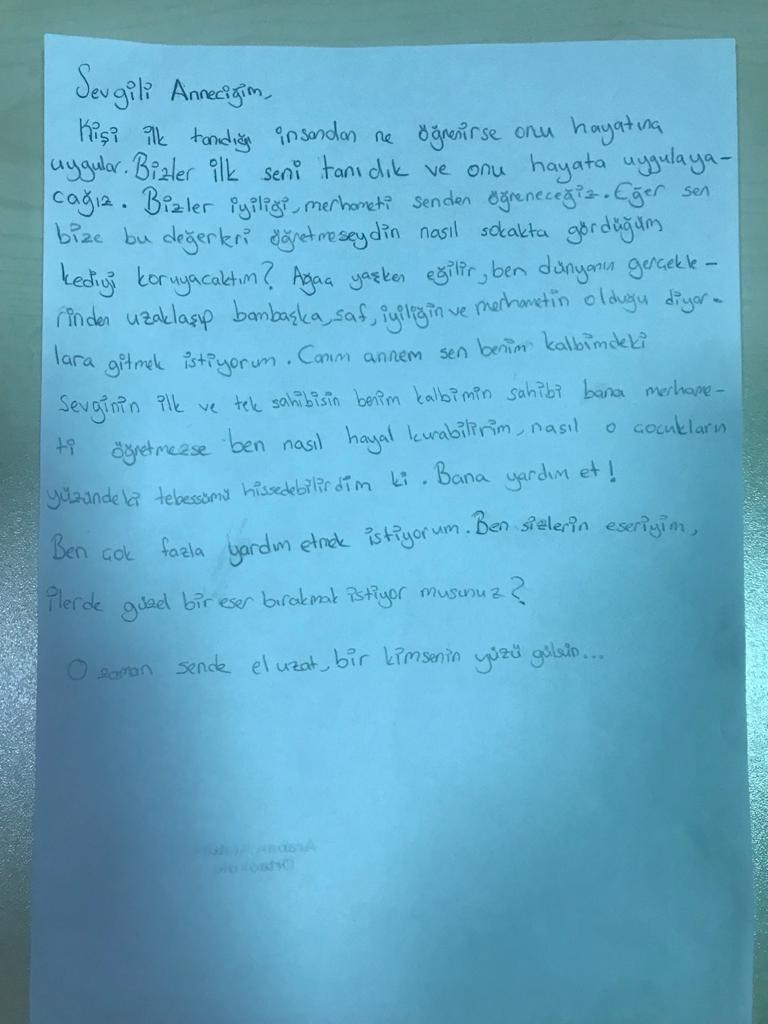 Sevgili Anneciğim,
Kişi ilk tanıdığı insandan ne öğrenirse onu hayatına
uygular. Bizler ilk seni tanıdık ve onu hayata uygulaya-
cağız. Bizler iyiliği, merhameti senden öğreneceğiz. Eğer sen
bize bu değerleri öğretmeseydin nasıl sokakta gördüğüm
kediyi koruyacaktım? Ağaç yaşken eğilir, ben dünyanın gerçekle-
rinden uzaklaşıp bambaşka, saf, iyiliğin ve merhametin olduğu diyar-
lara gitmek istiyorum. Canım annem sen benim kalbimdeki
sevginin ilk ve tek sahibisin benim kalbimin sahibi bana merhame-
ti öğretmezse ben nasıl hayal kurabilirim, nasıl o çocukların
yüzündeki tebessümü hissedebilirdim ki. Bana yardım et!
Ben çok fazla yardım etmek istiyorum. Ben sizlerin eseriyim,
ilerde güzel bir eser bırakmak istiyor musunuz?
O zaman sende el uzat, bir kimsenin yüzü gülsün...